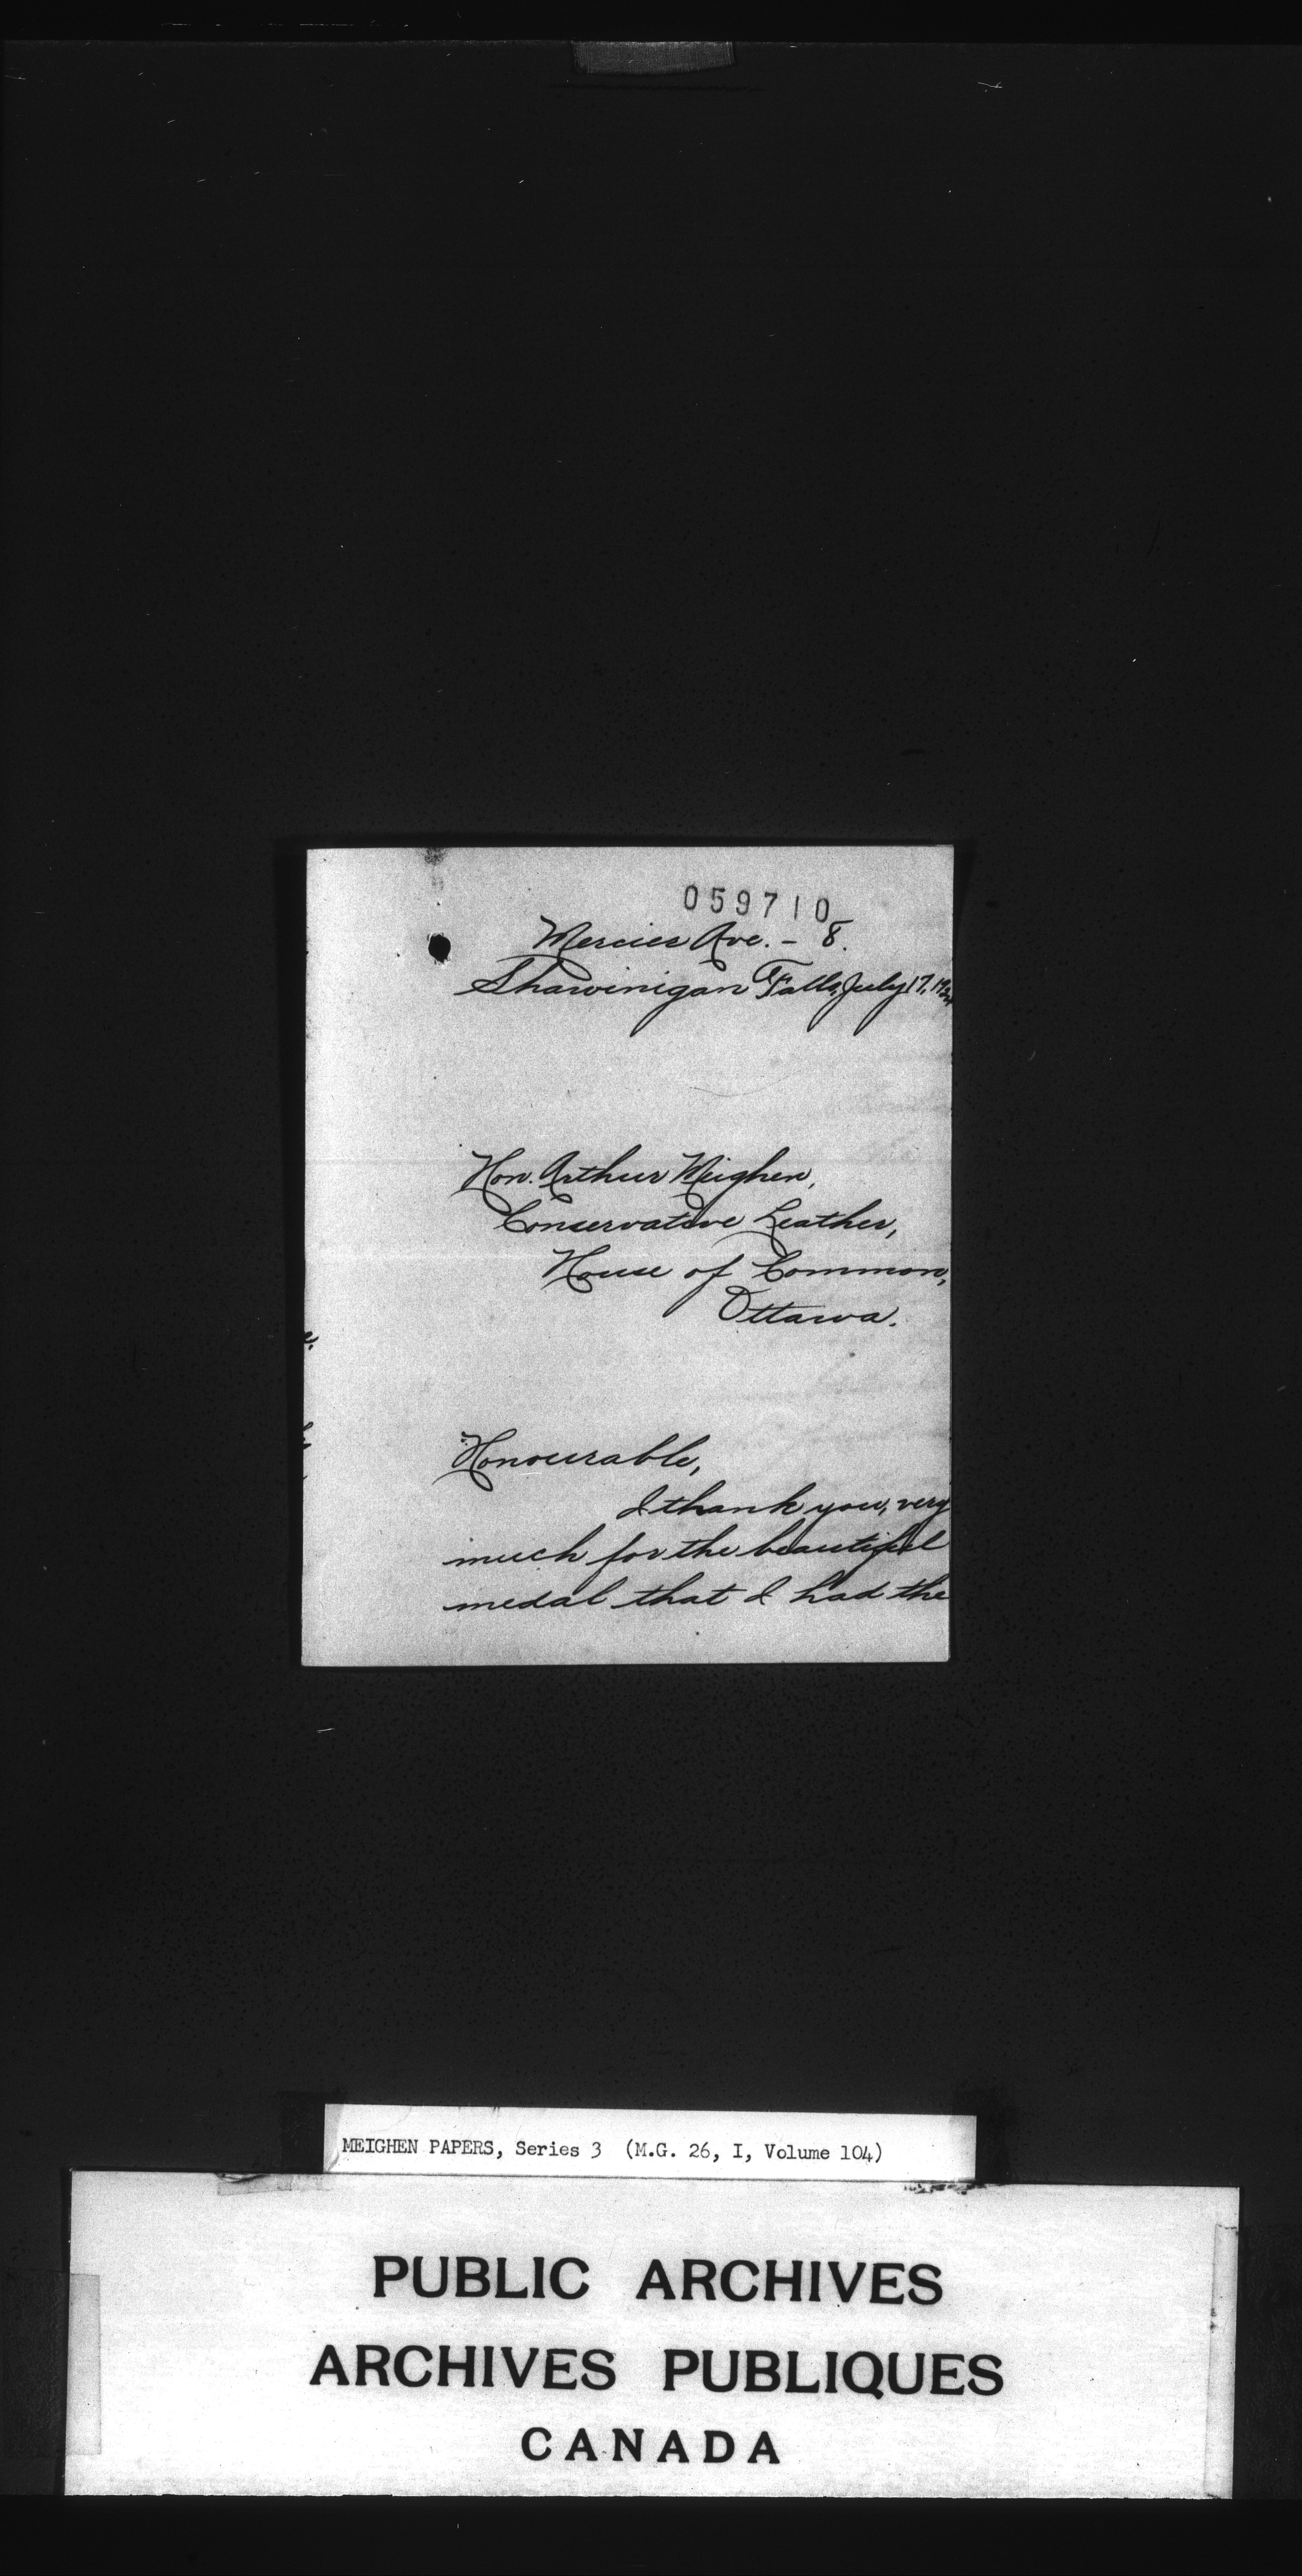 059710
Mercier Ave. - 8.
Shawinigan Falls, July 17, 1924
Hon. Arthur Meighen,
Conservative Leather,
House of Common,
Ottawa.
Honourable,
I thank you, very
much for the beautiful
medal that I had the
MEIGHEN PAPERS, Series 3 (M.G. 26, I, Volume 104)
PUBLIC ARCHIVES
ARCHIVES PUBLIQUES
CANADA